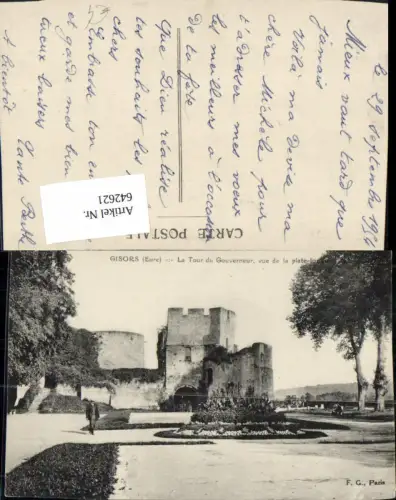 le 29 Septembre 195
Mieux vaut tard que
jamais
Voilà ma Devise ma
chère Michèle pour
t'adresser mes voeux
les meilleurs à l'occasion
de la fête
Que Dieu réalise
tes souhaits les
chers
Embrasse ton
et garde mes bien
tueux baisers
A bientôt
CARTE POSTALE
Artikel Nr.
642621
GISORS (Eure) — La Tour du Gouverneur, vue de la
F. G., Paris